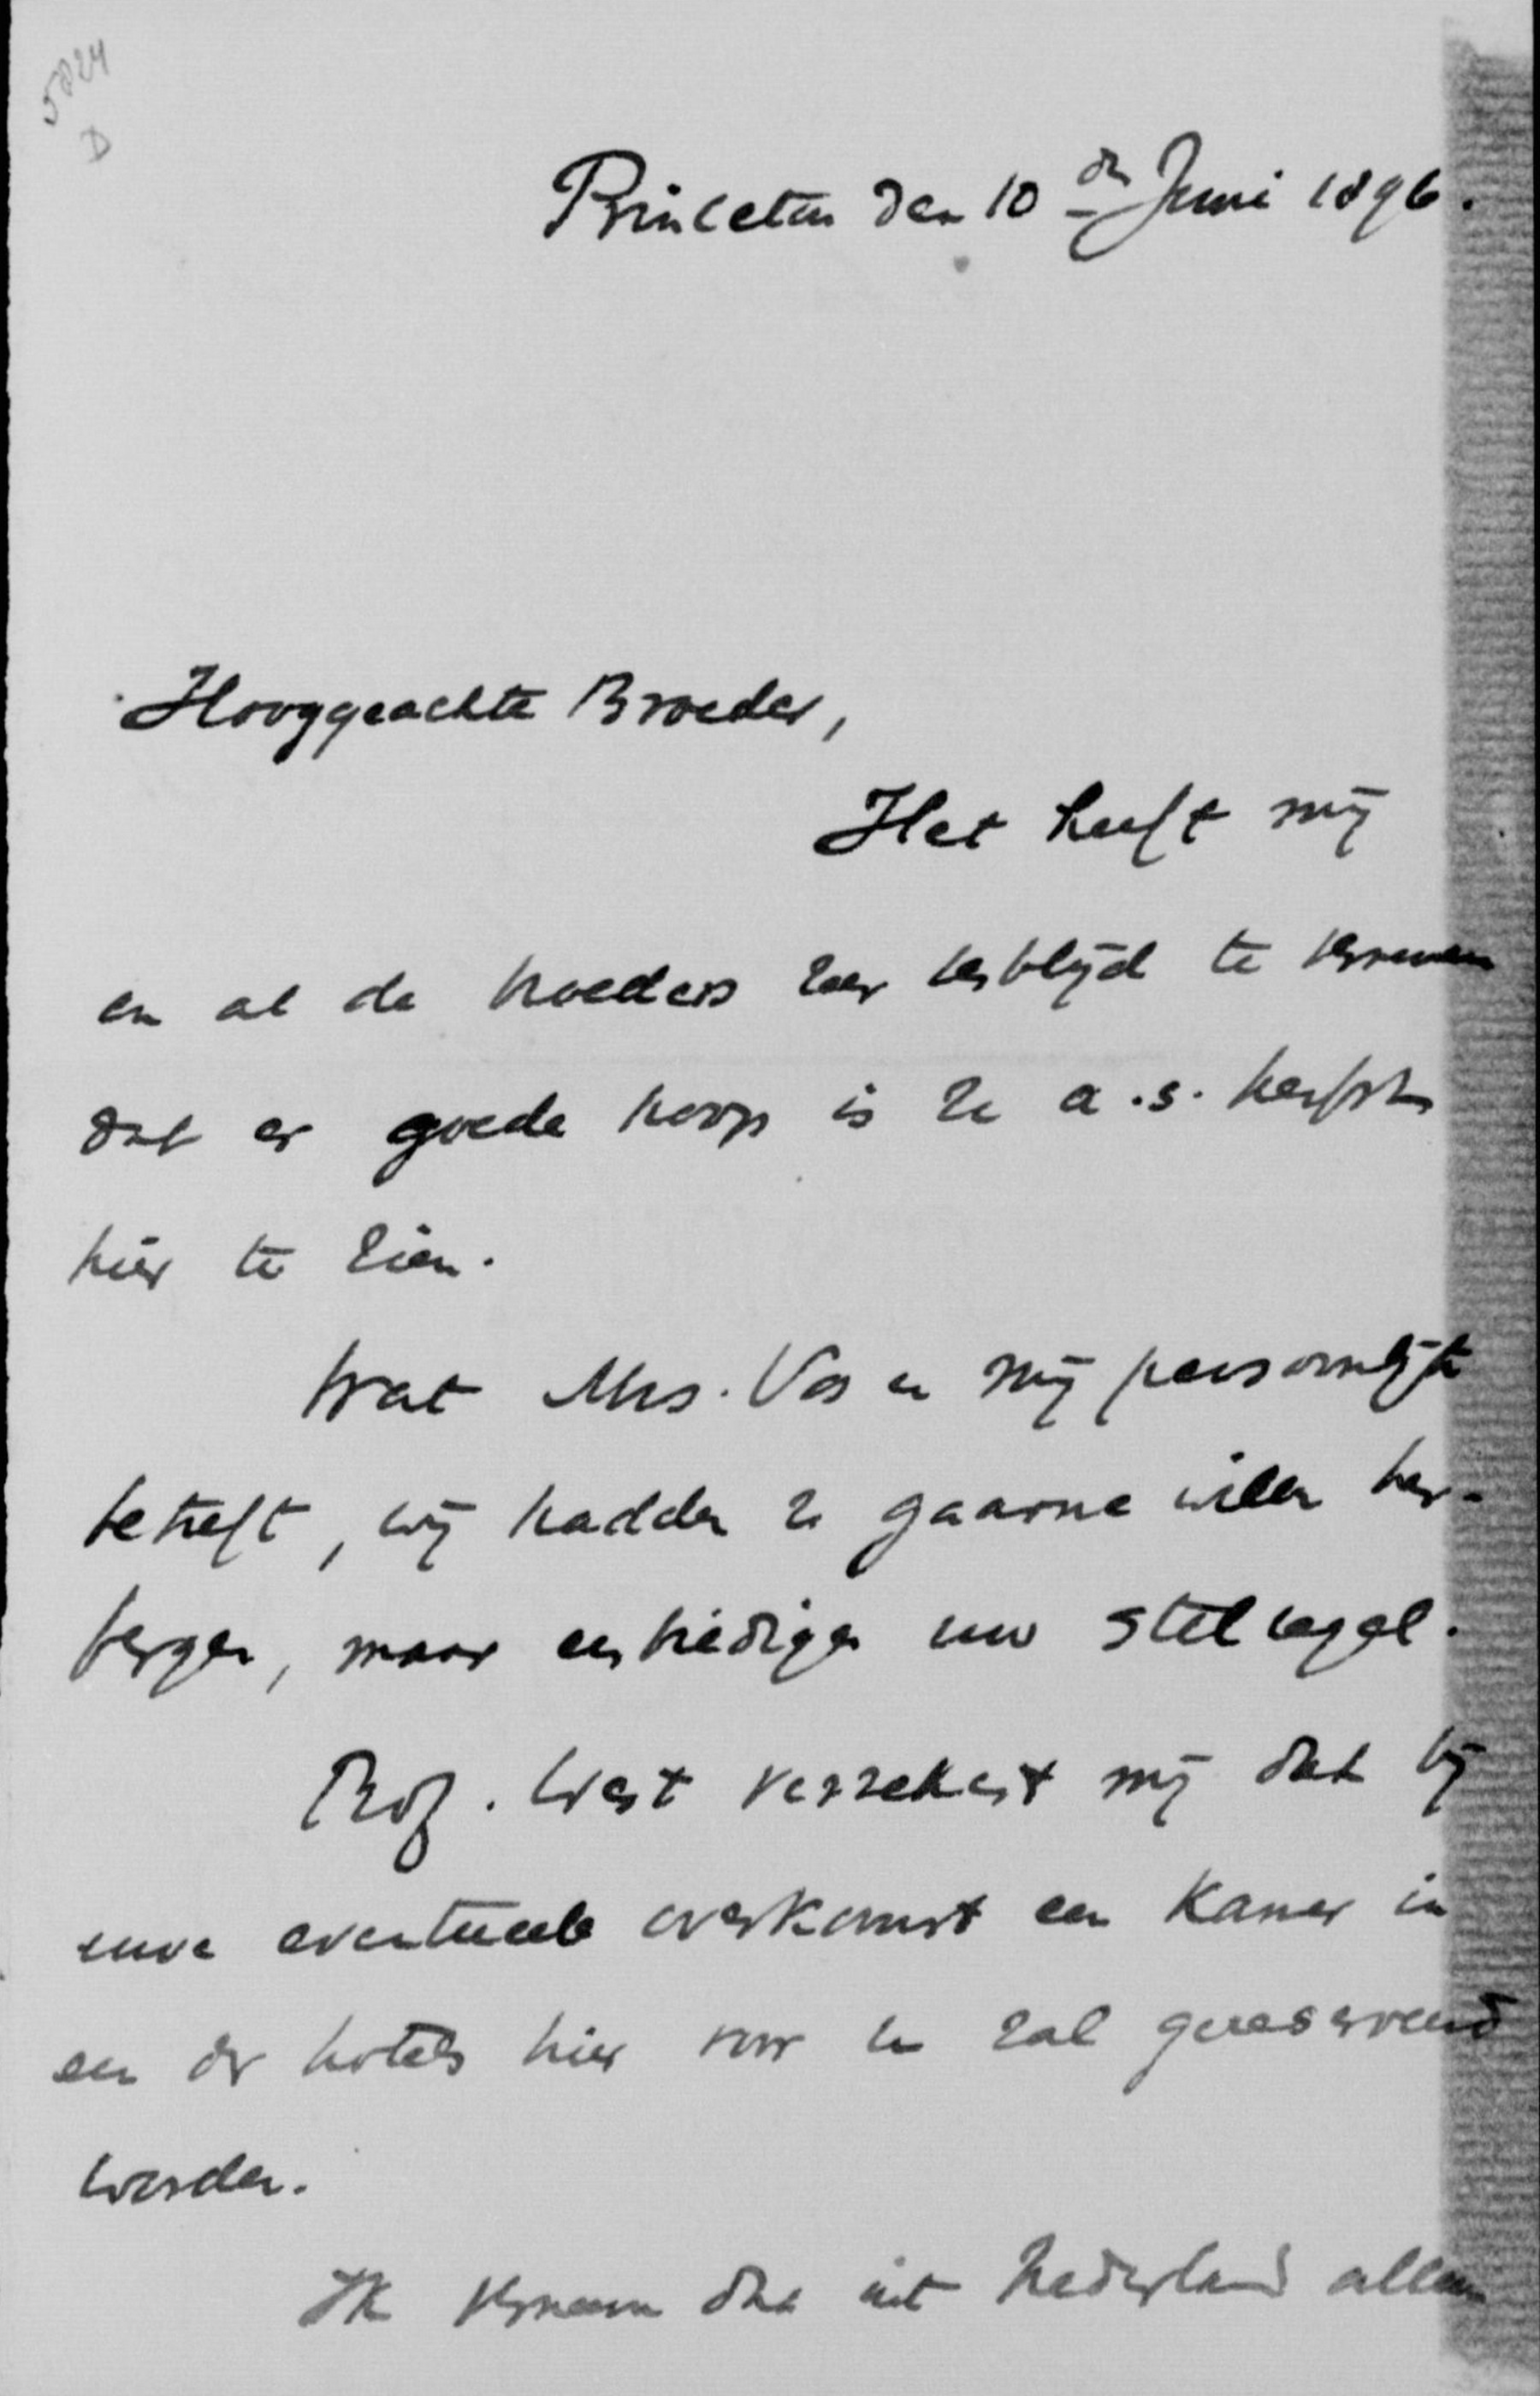 5824
D
Princeton den 10den Juni 1896.
Hooggeachte Broeder,
Het heeft mij
en al de broeders zeer verblijd te vernemen
dat er goede hoop is U a.s. herfst
hier te zien.
Wat Mrs. Vos en mij persoonlijk
betreft, wij hadden U gaarne willen her-
bergen, maar eerbiedigen uw stelregel.
Prof. West verzekert mij dat bij
uwe eventueele overkomst een kamer in
een der hotels hier voor U zal gereserveerd
worden.
Ik verneem dat uit Nederland alleen